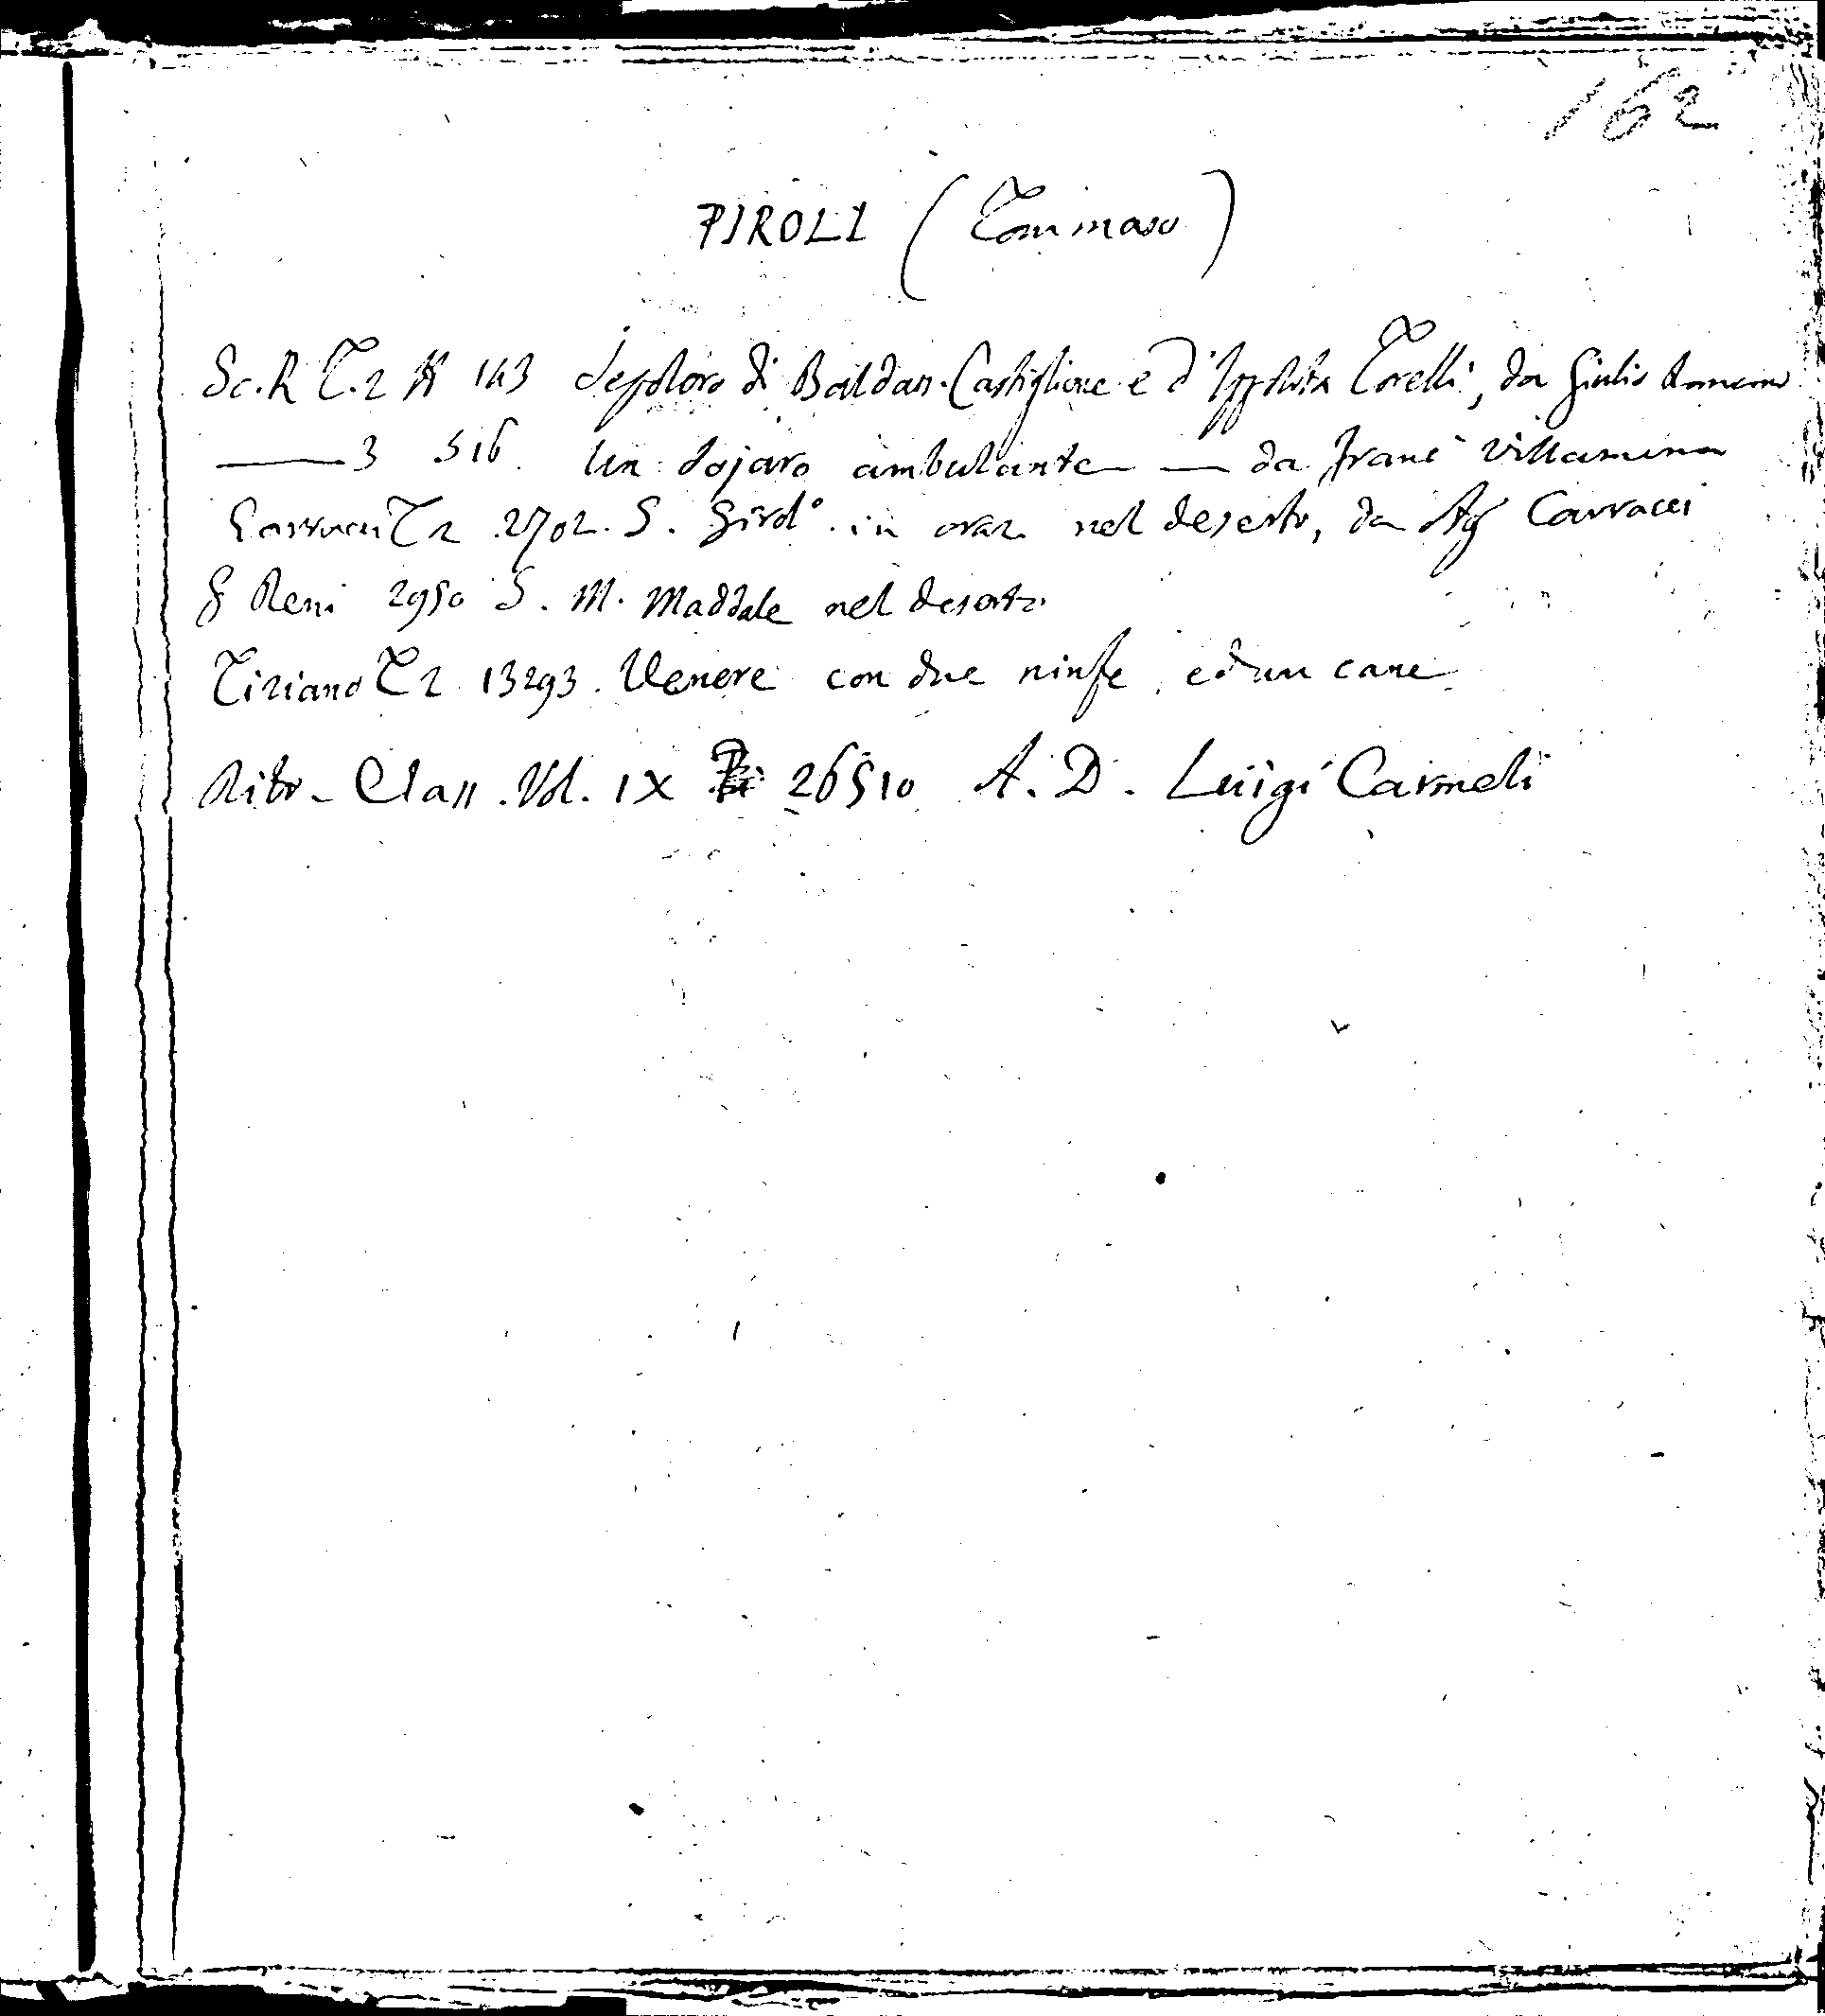 162
PIROLI (Tommaso)
Sc. R T. 2 N 143 Sepolcro di Baldas. Castiglione e d'Ippolita Torelli, da Giulio Romano
—— 3 516. Un dojaro ambulante — da Franc Villamena
Carracci T 2 2702. S. Girolº. in oraz. nel deserto, da Ag Carracci
G Reni 2950 S. M. Maddale nel deserto
Tiziano T 2 13293. Venere con due ninfe, ed un cane
Ritr - Class. Vol. IX 26510 A. D. Luigi Carmeli